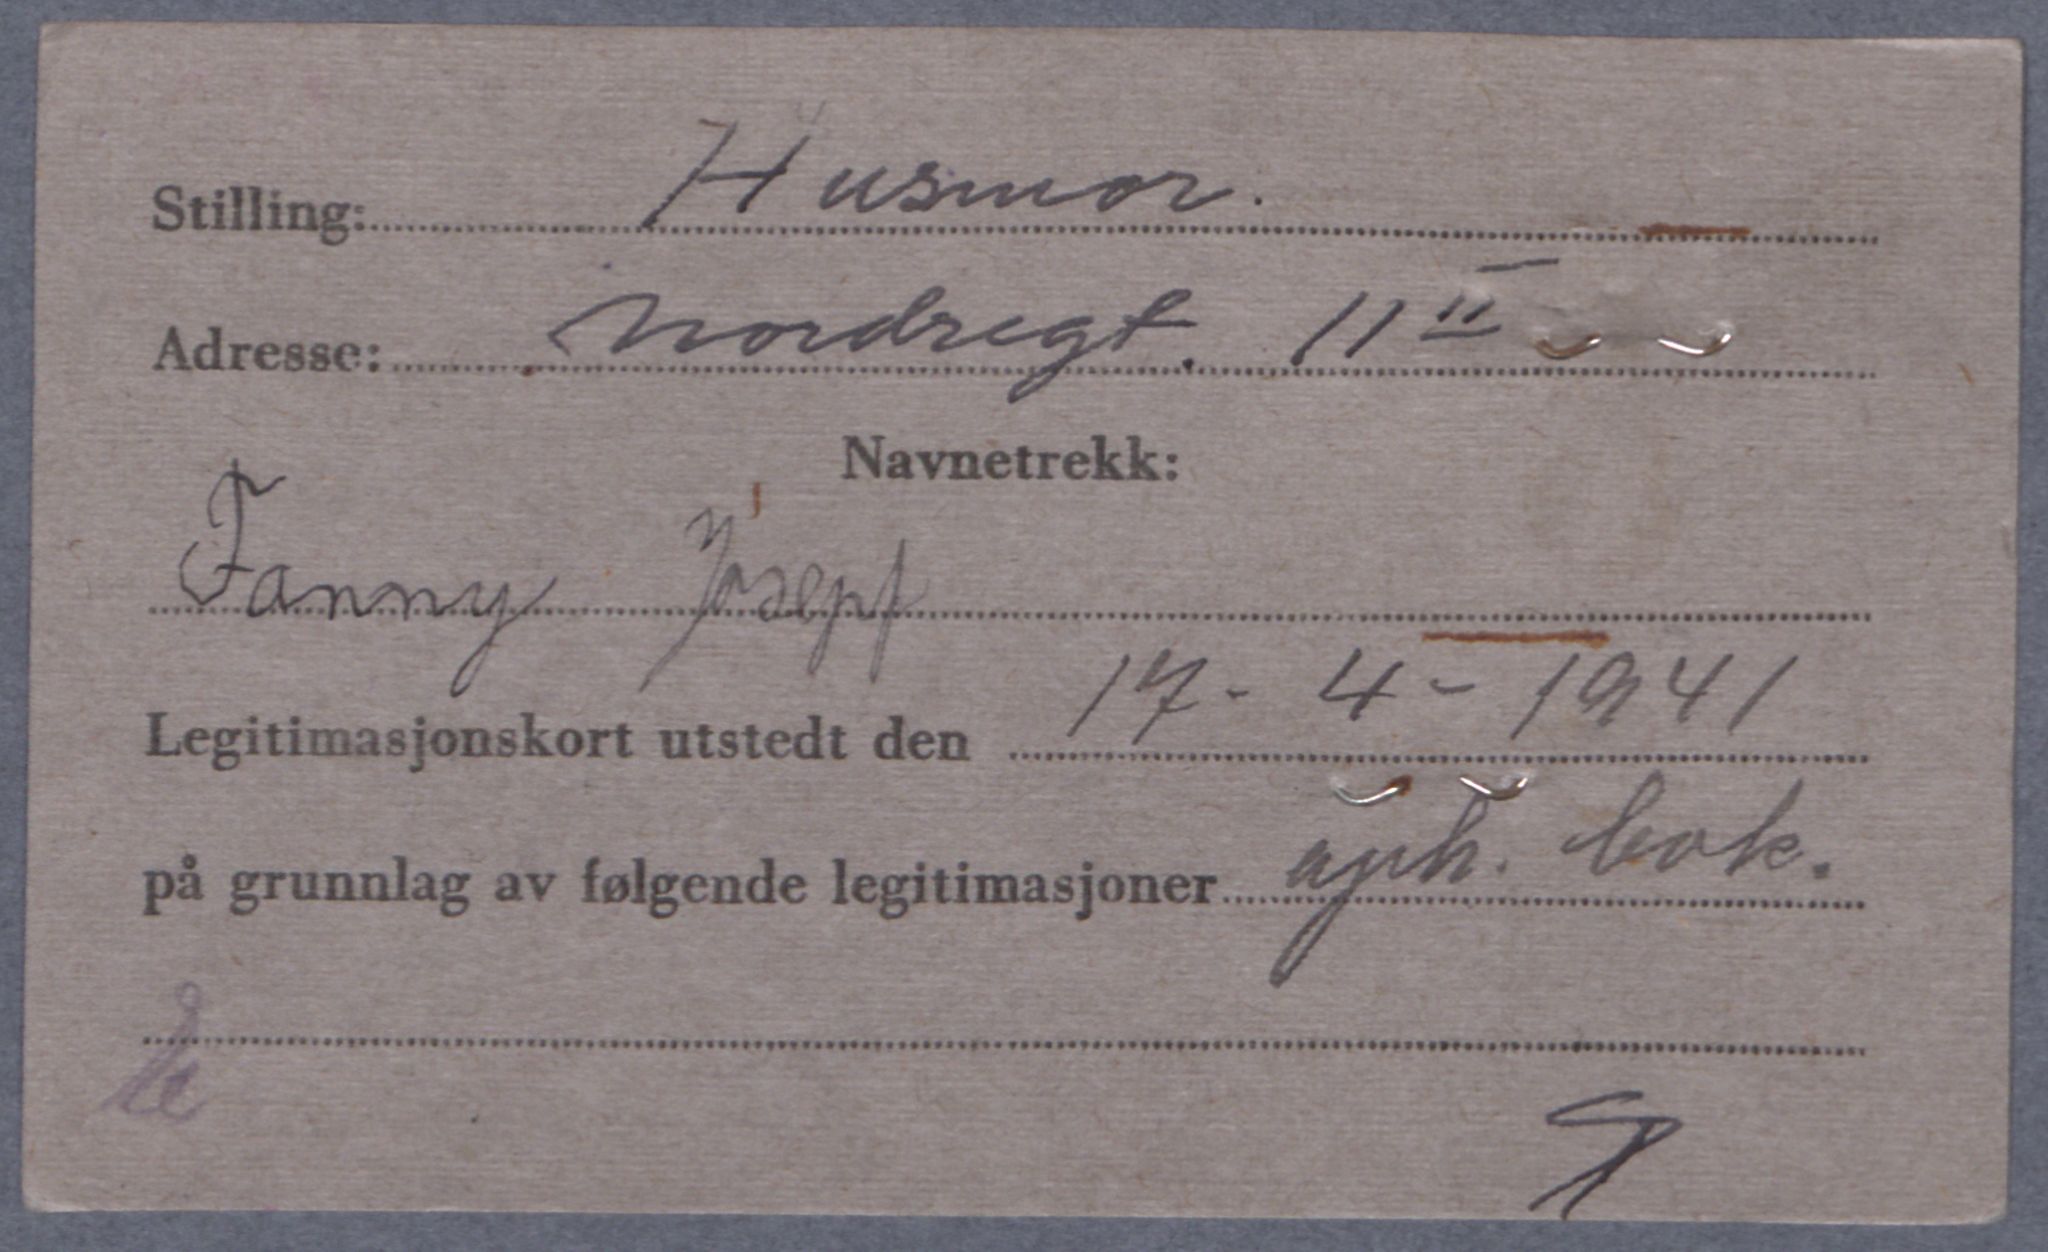 Stilling: Husmor.
Adresse: Nordregt. 11 II
Navnetrekk:
Fanny Josepf
Legitimasjonskort utstedt den 17-4-1941
på grunnlag av følgende legitimasjoner oph. bok.